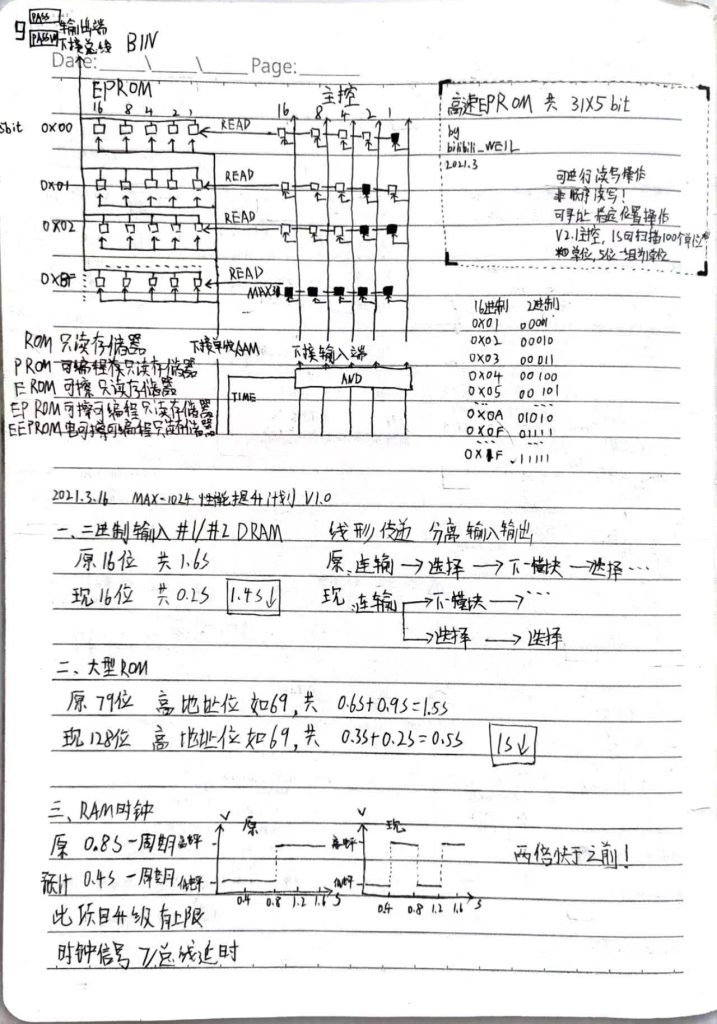 9 PASS 输出端
PASS 下接总线 BIN
Date: \ \ Page:
EPROM 主控
16 8 4 2 1 16 8 4 2 1
5bit 0X00 READ
0X01 READ
0X02 READ
READ
MAX
高速EPROM 共 31X5bit
by
bilibili_WEIL
2021.3
可进行读写操作
非顺序读写!
可寻址 指定位置操作
V2.1主控, 1S可扫描100个单位
单位,5位一组为单位
16进制 2进制
0X01 00001
0X02 00010
0X03 00011
0X04 00100
0X05 00101
...
0X0A 01010
0X0F 01111
...
0X1F 11111
ROM 只读存储器
PROM 可编程只读存储器
EROM 可擦只读存储器
EPROM 可擦可编程只读存储器
EEPROM 电可擦可编程只读存储器
下接 RAM 下接输入端
AND
TIME
2021.3.16 MAX-1024 性能提升计划 V1.0
一、二进制输入 #1/#2 DRAM 线形传递 分离输入输出
原16位 共1.6S 原、连输 → 选择 → 下一模块 → 选择 ...
现16位 共0.2S 1.4S↓ 现、连输 → 下一模块 → ...
→ 选择 → 选择
二、大型ROM
原79位 高地址位如69,共 0.6S+0.9S=1.5S
现128位 高地址位如69,共 0.3S+0.2S=0.5S 1S↓
三、RAM时钟
原 0.8S一周期
预计 0.4S一周期
V 原 高电平 低电平 0.4 0.8 1.2 1.6 S
V 现 高电平 低电平 0.4 0.8 1.2 1.6 S
两倍快于之前!
此项目升级有上限
时钟信号 ≯总线延时